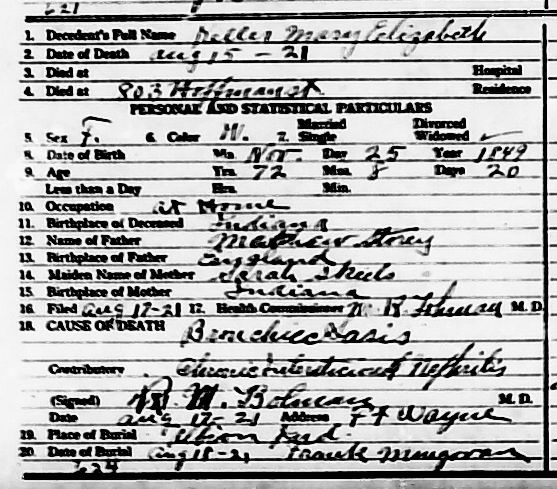 621
1. Decedent's Full Name Keller Mary Elizabeth
2. Date of Death Aug 15 - 21
3. Died at Hospital
4. Died at 803 Hoffman st Residence
PERSONAL AND STATISTICAL PARTICULARS
5. Sex F. 6. Color W. 7. Married Single Divorced Widowed ✓
8. Date of Birth Mo. Nov. Day 25 Year 1849
9. Age Yrs. 72 Mos. 8 Days 20
Less than a Day Hrs. Min.
10. Occupation at Home
11. Birthplace of Deceased Indiana
12. Name of Father Mathew Storey
13. Birthplace of Father England
14. Maiden Name of Mother Sarah
15. Birthplace of Mother Indiana
16. Filed Aug 17-21 17. Health Commissioner M. D.
18. CAUSE OF DEATH Bronchiectasis
Contributory Chronic Intersticial Nephritis
(Signed) M. Bolman M. D.
Date Aug 17-21 Address Ft Wayne
19. Place of Burial Albion Ind.
20. Date of Burial Aug 18-21 Frank Mungovan
624